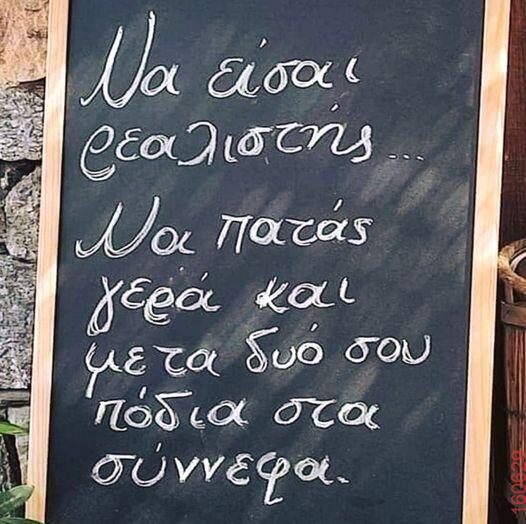 Να είσαι
ρεαλιστής...
Να πατάς
γερά και
με τα δυό σου
πόδια στα
σύννεφα.